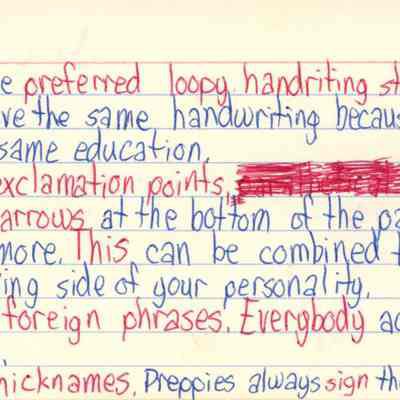 e preferred loopy handriting st
ve the same handwriting becaus
same education.
exclamation points,
arrows at the bottom of the pa
more. This can be combined t
ing side of your personality.
foreign phrases. Everybody ac
nicknames. Preppies always sign the